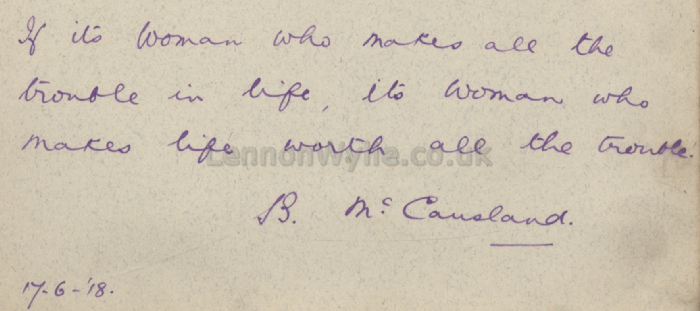 If its Woman who makes all the
trouble in life, its Woman who
makes life worth all the trouble.
LennonWylie.co.uk
B. Mc Causland.
17-6-'18.